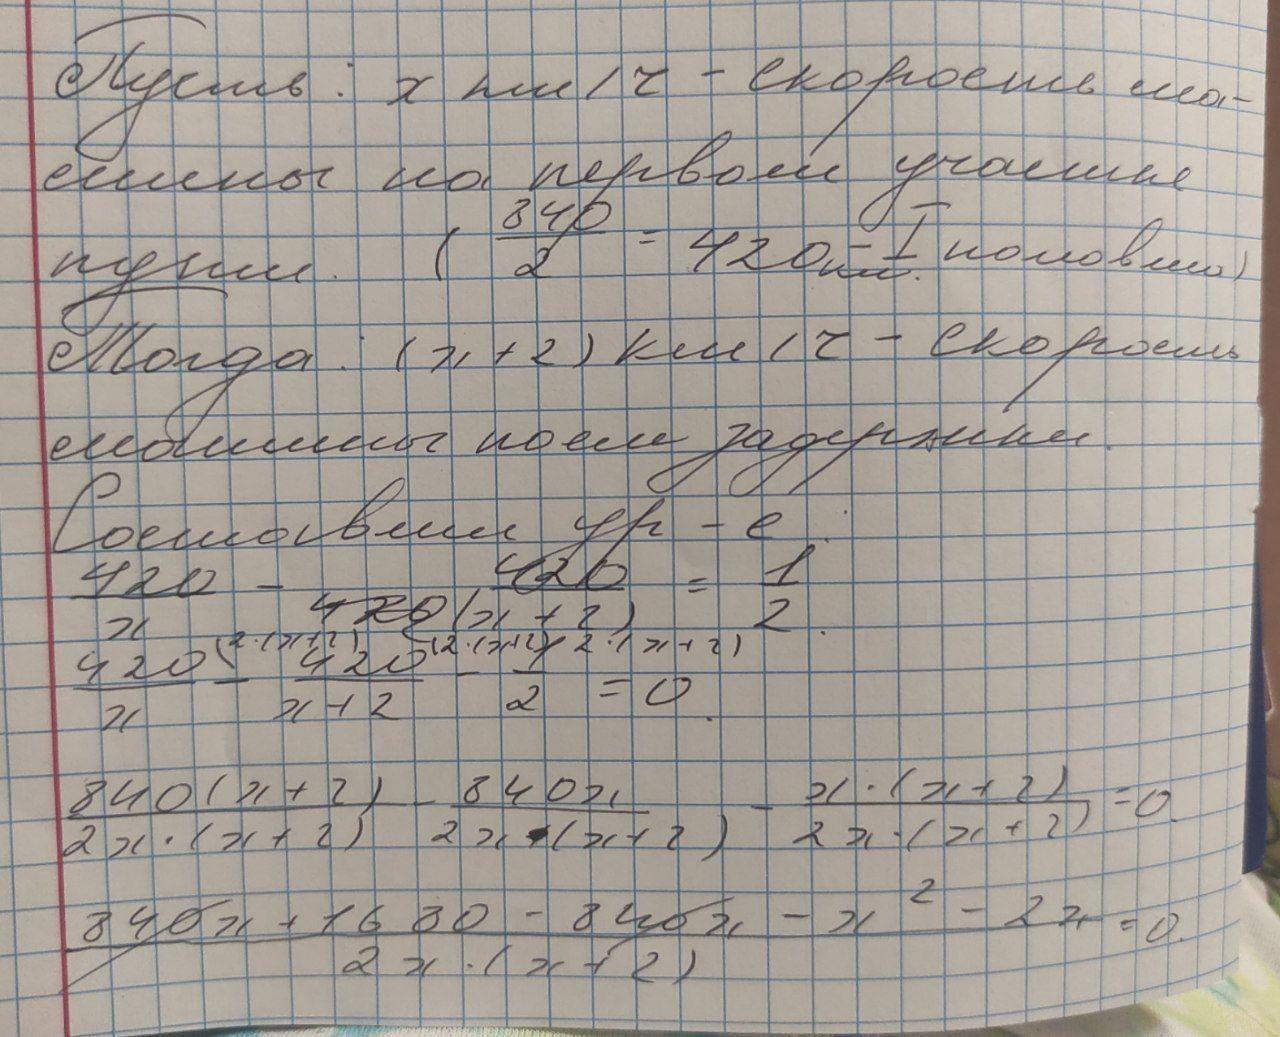 Пусть: х км/ч - скорость ма-
шины на первом участке
пути. ( 840/2 = 420 км. - I половина)
Тогда: (х+2) км/ч - скорость
машины после задержки.
Составим ур-е:
420/х - 420/(х+2) = 1/2.
420/х - 420/х+2 - 1/2 = 0.
840(х+2)/2х·(х+2) - 840х/2х·(х+2) - х·(х+2)/2х·(х+2) = 0.
840х + 1680 - 840х - х² - 2х/2х·(х+2) = 0.